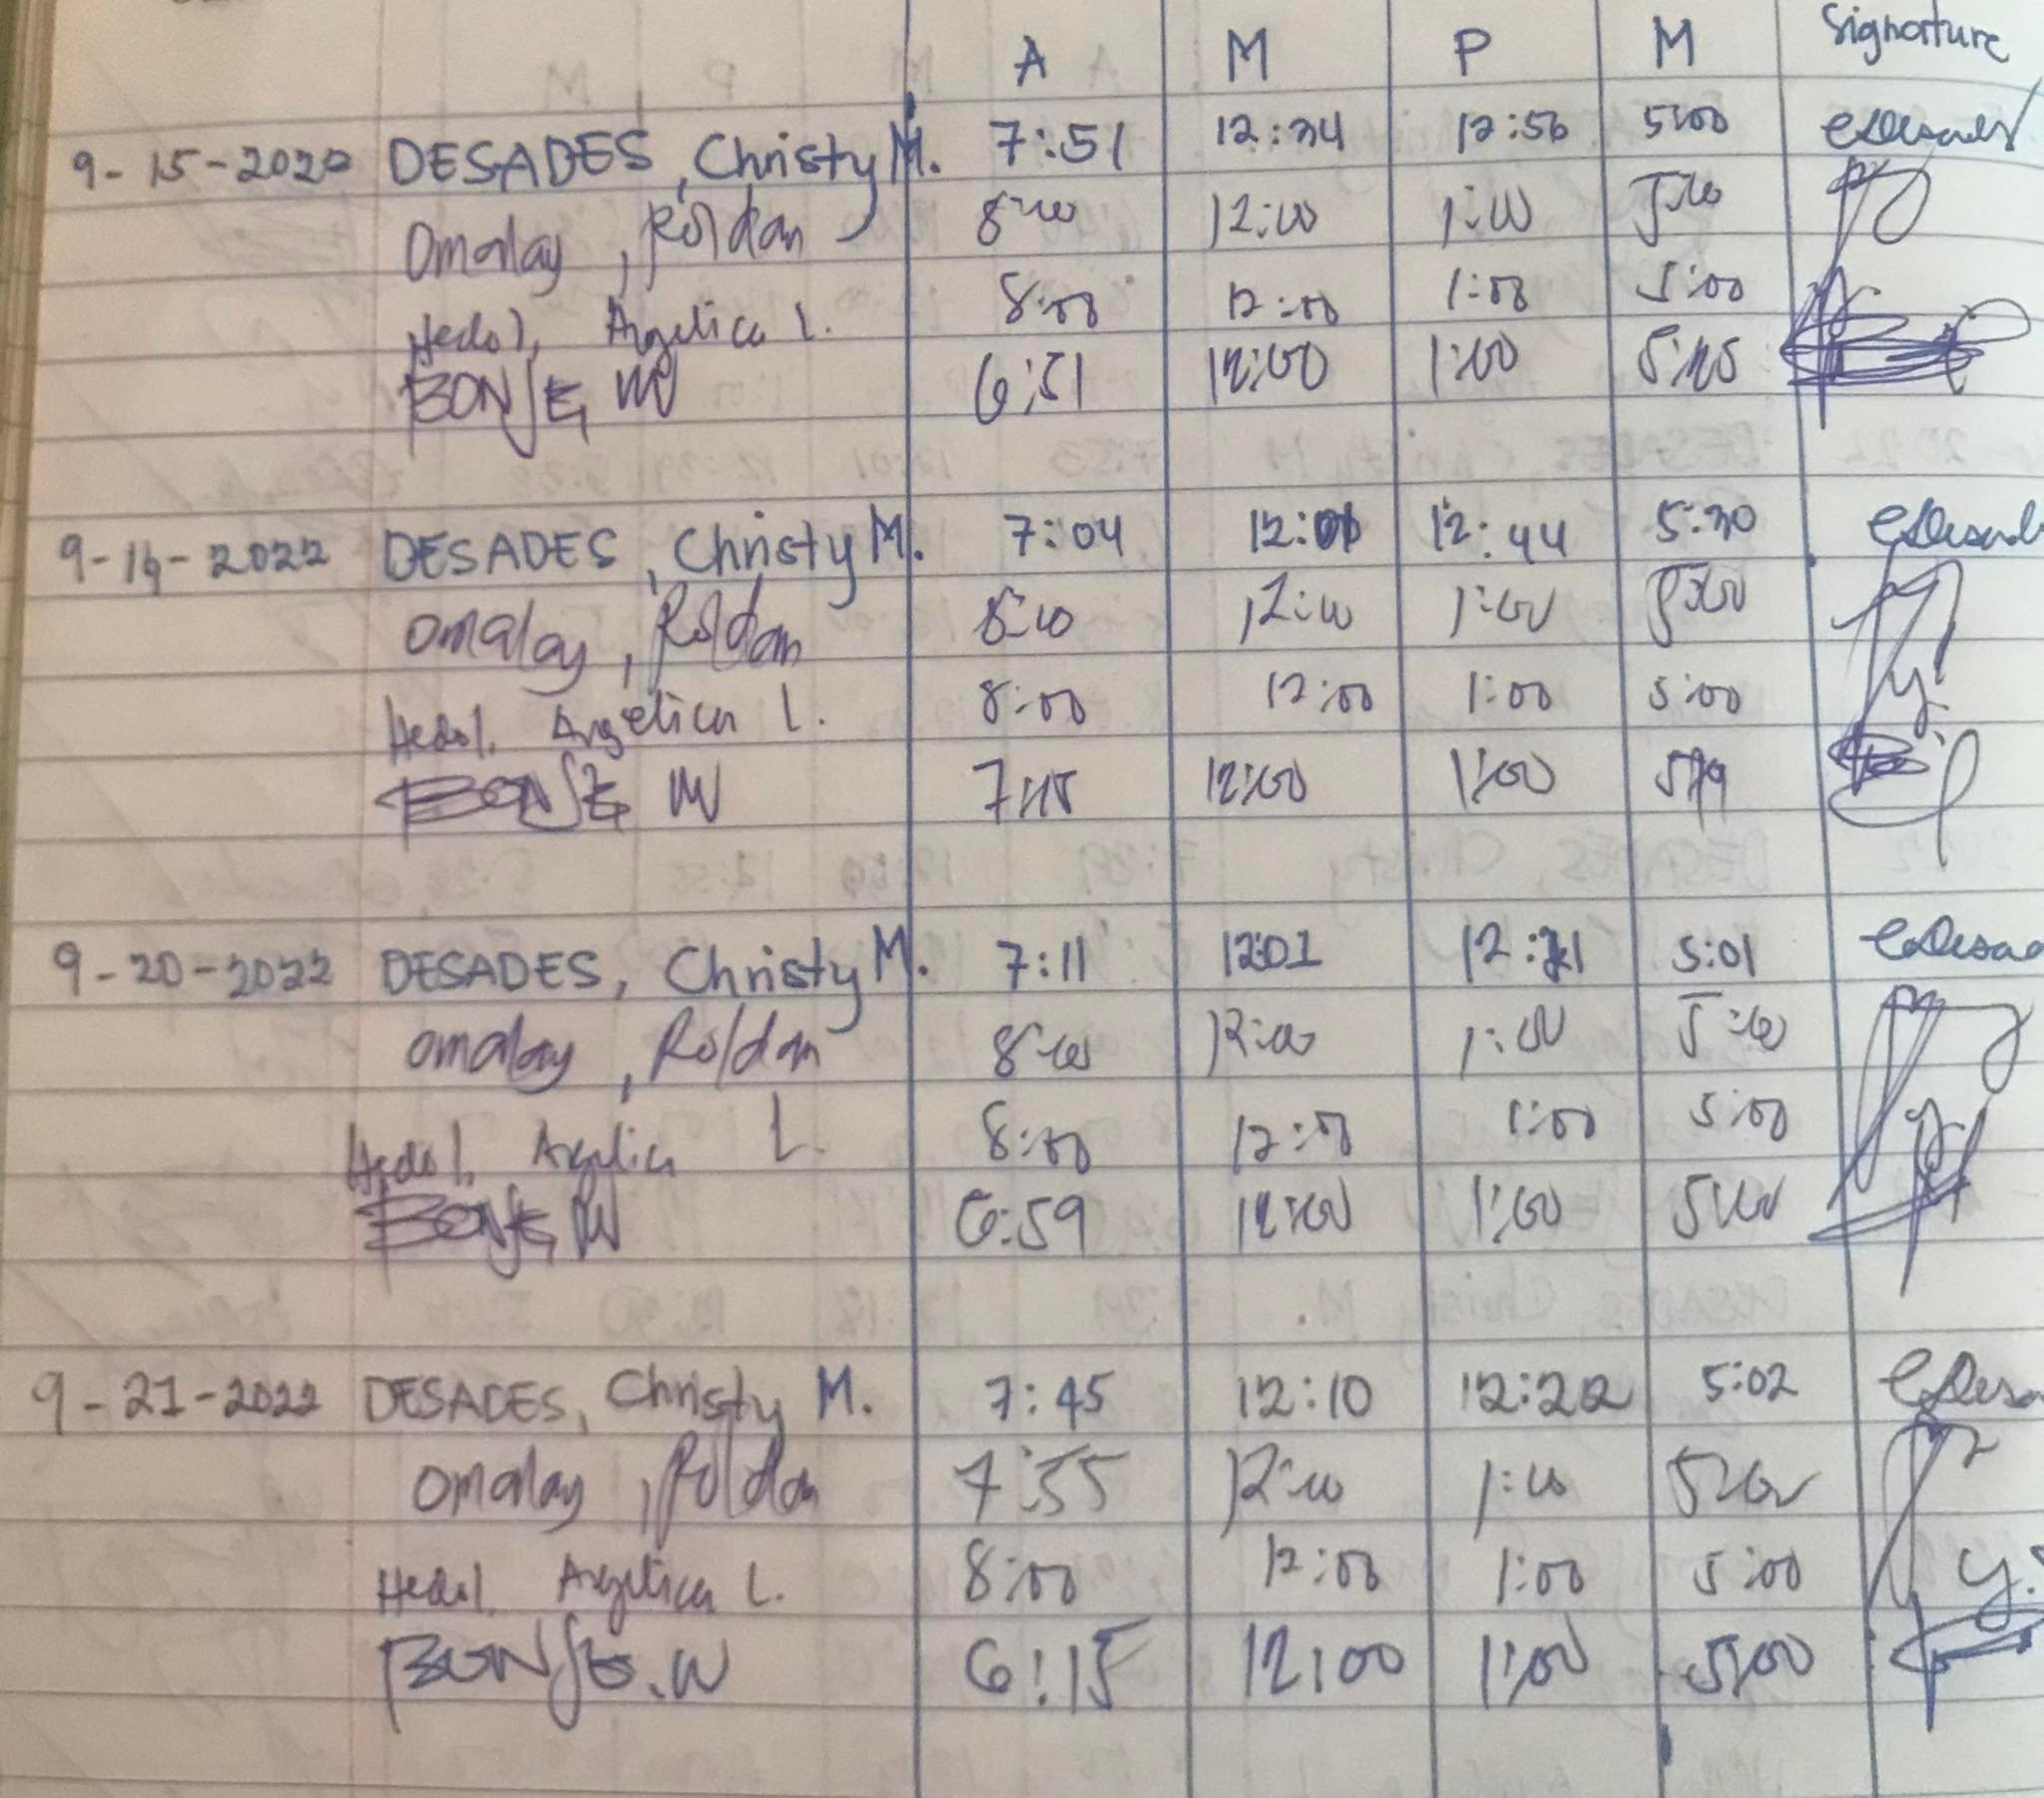 A M P M Signature
9-15-2022 DESADES, Christy M. 7:51 12:34 12:56 5:00
Omalay, Roldan 8:00 12:00 1:00 5:00
Hedol, Angelica L. 8:00 12:00 1:00 5:00
6:51 12:00 1:00
DESADES, Christy M. 7:04 12:44 5:30
Omalay, Roldan 8:00 12:00 1:00 5:00
Hedol, Angelica L. 8:00 12:00 1:00 5:00
12:00 1:00
9-20-2022 DESADES, Christy M. 7:11 12:01 5:01
Omalay, Roldan 8:00 12:00 1:00 5:00
Hedol, Angelica L. 8:00 12:00 1:00 5:00
6:59 12:00 1:00 5:00
9-21-2022 DESADES, Christy M. 7:45 12:10 12:22 5:02
Omalay, Roldan 7:55 12:00 1:00 5:00
Hedol, Angelica L. 8:00 12:00 1:00 5:00
6:15 12:00 1:00 5:00